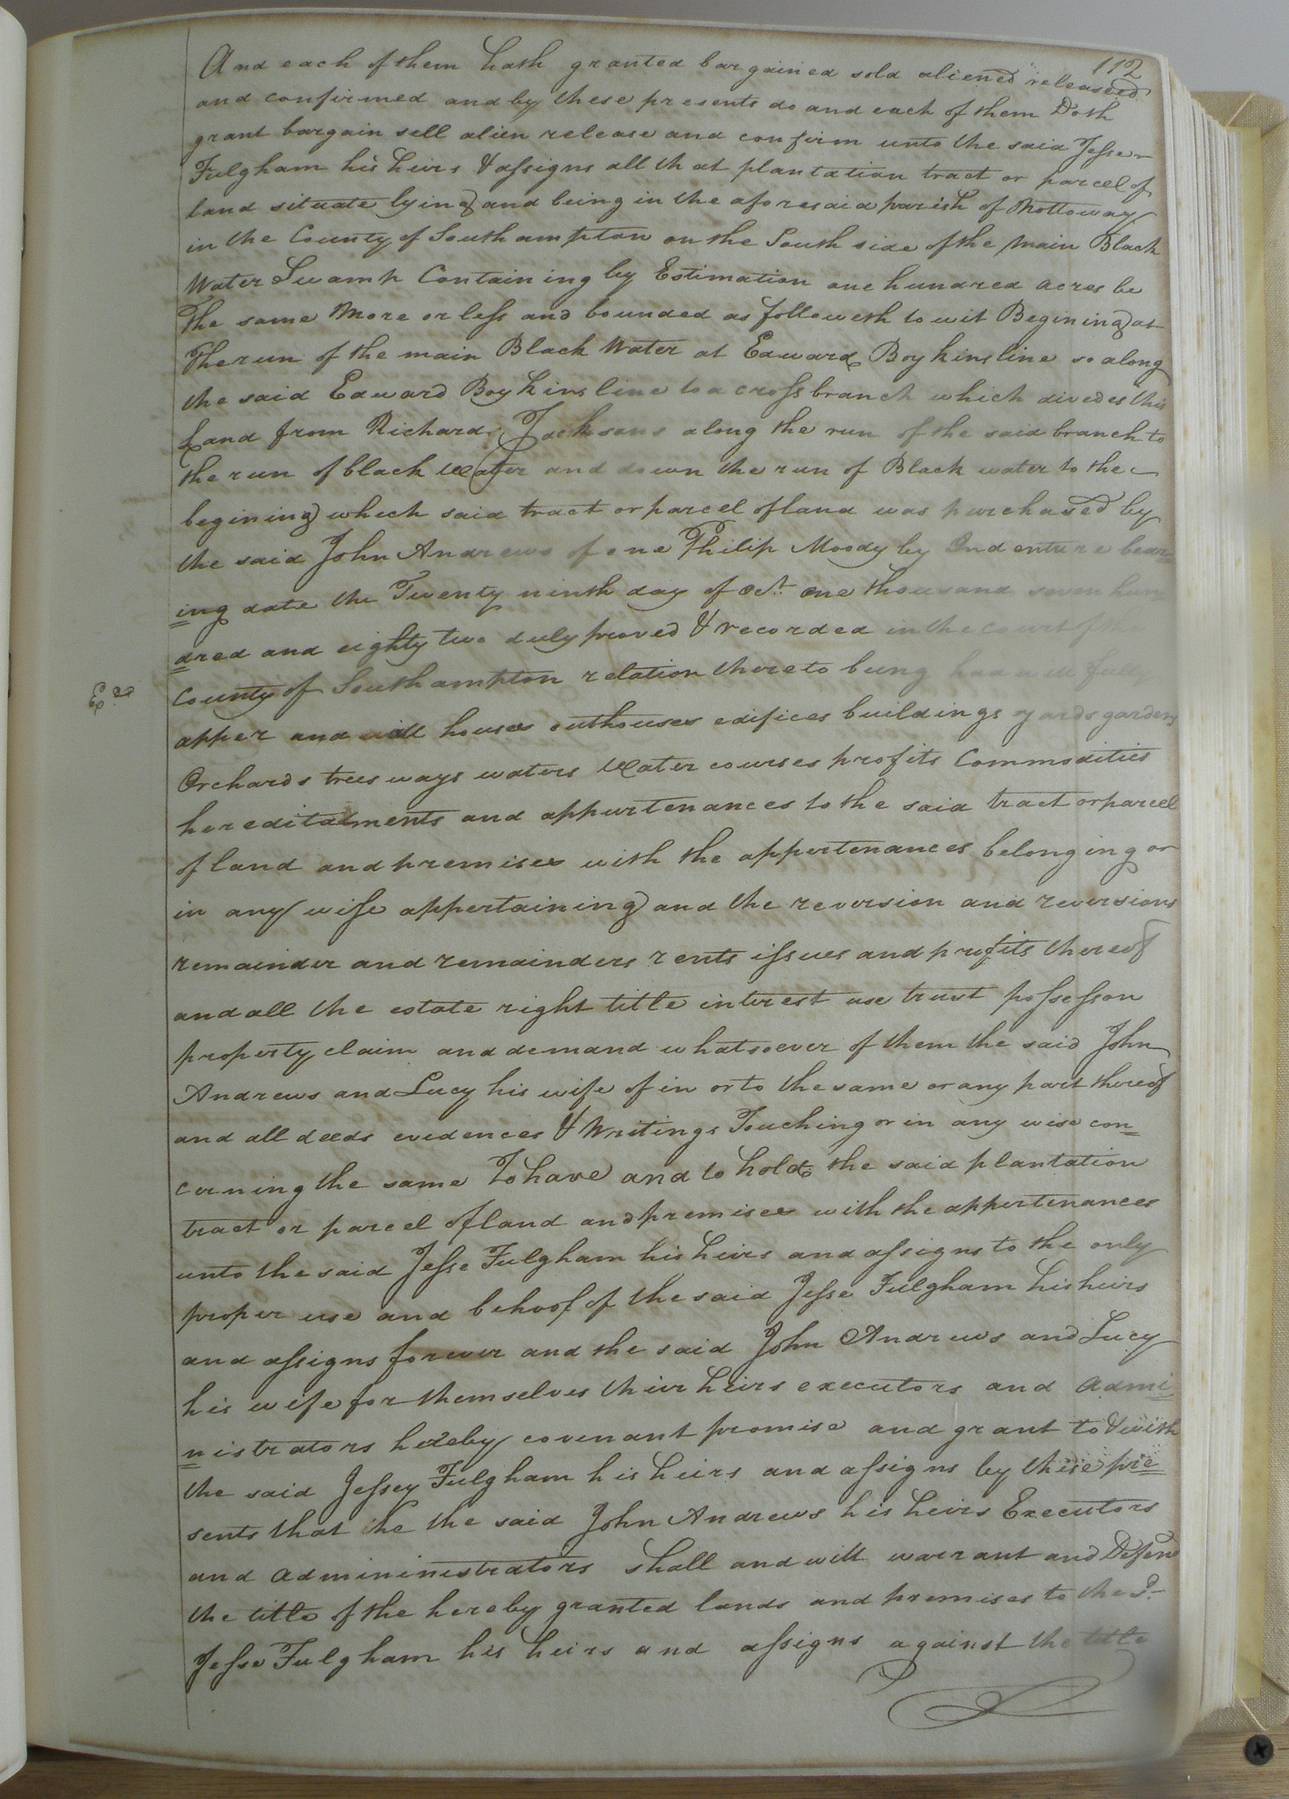 112
And each of them hath granted bargained sold aliened released
and confirmed and by these presents do and each of them Doth
grant bargain sell alien release and confirm unto the said Jesse
Fulgham his heirs & assigns all that plantation tract or parcel of
land situate lying and being in the aforesaid parish of Nottoway
in the County of Southampton on the South side of the main Black
Water Swamp Containing by Estimation one hundred acres be
The same More or less and bounded as followeth to wit Begining at
The run of the main Black Water at Edward Boykins line so along
the said Edward Boykins line to a cross branch which divedes this
Land from Richard Jacksons along the run of the said branch to
the run of black Water and down the run of Black water to the
begining which said tract or parcel of land was purchased by
the said John Andrews of one Philip Moody by Indenture bear=
ing date the Twenty ninth day of Oct. one thousand seven hun=
dred and eighty two duly proved & recorded in the court of the
County of Southampton relation thereto being had will fully
Ex.d
apper and all houses outhouses edifices buildings yards gardens
Orchards trees ways waters Water courses profits Commodities
hereditatments and appurtenances to the said tract or parcel
of land and premises with the appertenances belonging or
in any wise appertaining and the reversion and reversions
remainder and remainders rents issues and profits thereof
and all the estate right title interest use trust possesson
property claim and demand whatsoever of them the said John
Andrews and Lucy his wife of in or to the same or any part thereof
and all deeds evedences & Writings Touching or in any wise con=
cerning the same To have and to hold the said plantation
tract or parcel of land and premises with the appertenances
unto the said Jesse Fulgham his heirs and assigns to the only
proper use and behoof of the said Jesse Fulgham his heirs
and assigns forever and the said John Andrews and Lucy
his wife for themselves their heirs executors and admi=
nistrators hereby covenant promise and grant to & with
the said Jessey Fulgham his heirs and assigns by these pre=
sents that he the said John Andrews his heirs Executors
and admininistrators shall and will warrant and Defend
the title of the hereby granted lands and premises to the Sd.
Jesse Fulgham his heirs and assigns against the title